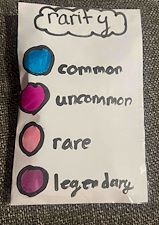 rarity
common
uncommon
rare
legendary